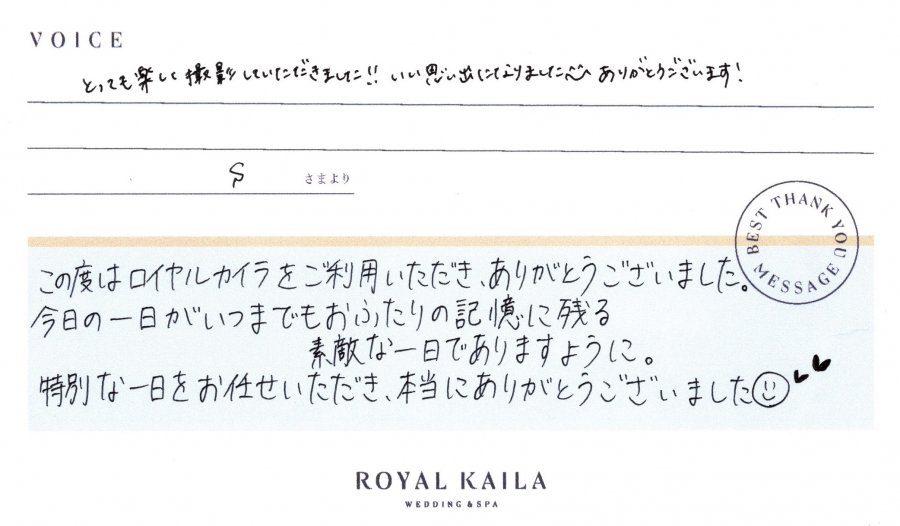 VOICE
とっても楽しく撮影していただきました!! いい思い出になりました♡ ありがとうございます!
S さまより
BEST THANK YOU MESSAGE
この度はロイヤルカイラをご利用いただき、ありがとうございました。
今日の一日がいつまでもおふたりの記憶に残る
素敵な一日でありますように。
特別な一日をお任せいただき、本当にありがとうございました
ROYAL KAILA
WEDDING & SPA